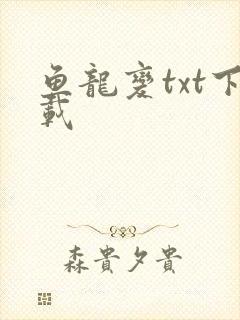 鱼龍變txt下
載
森貴夕貴